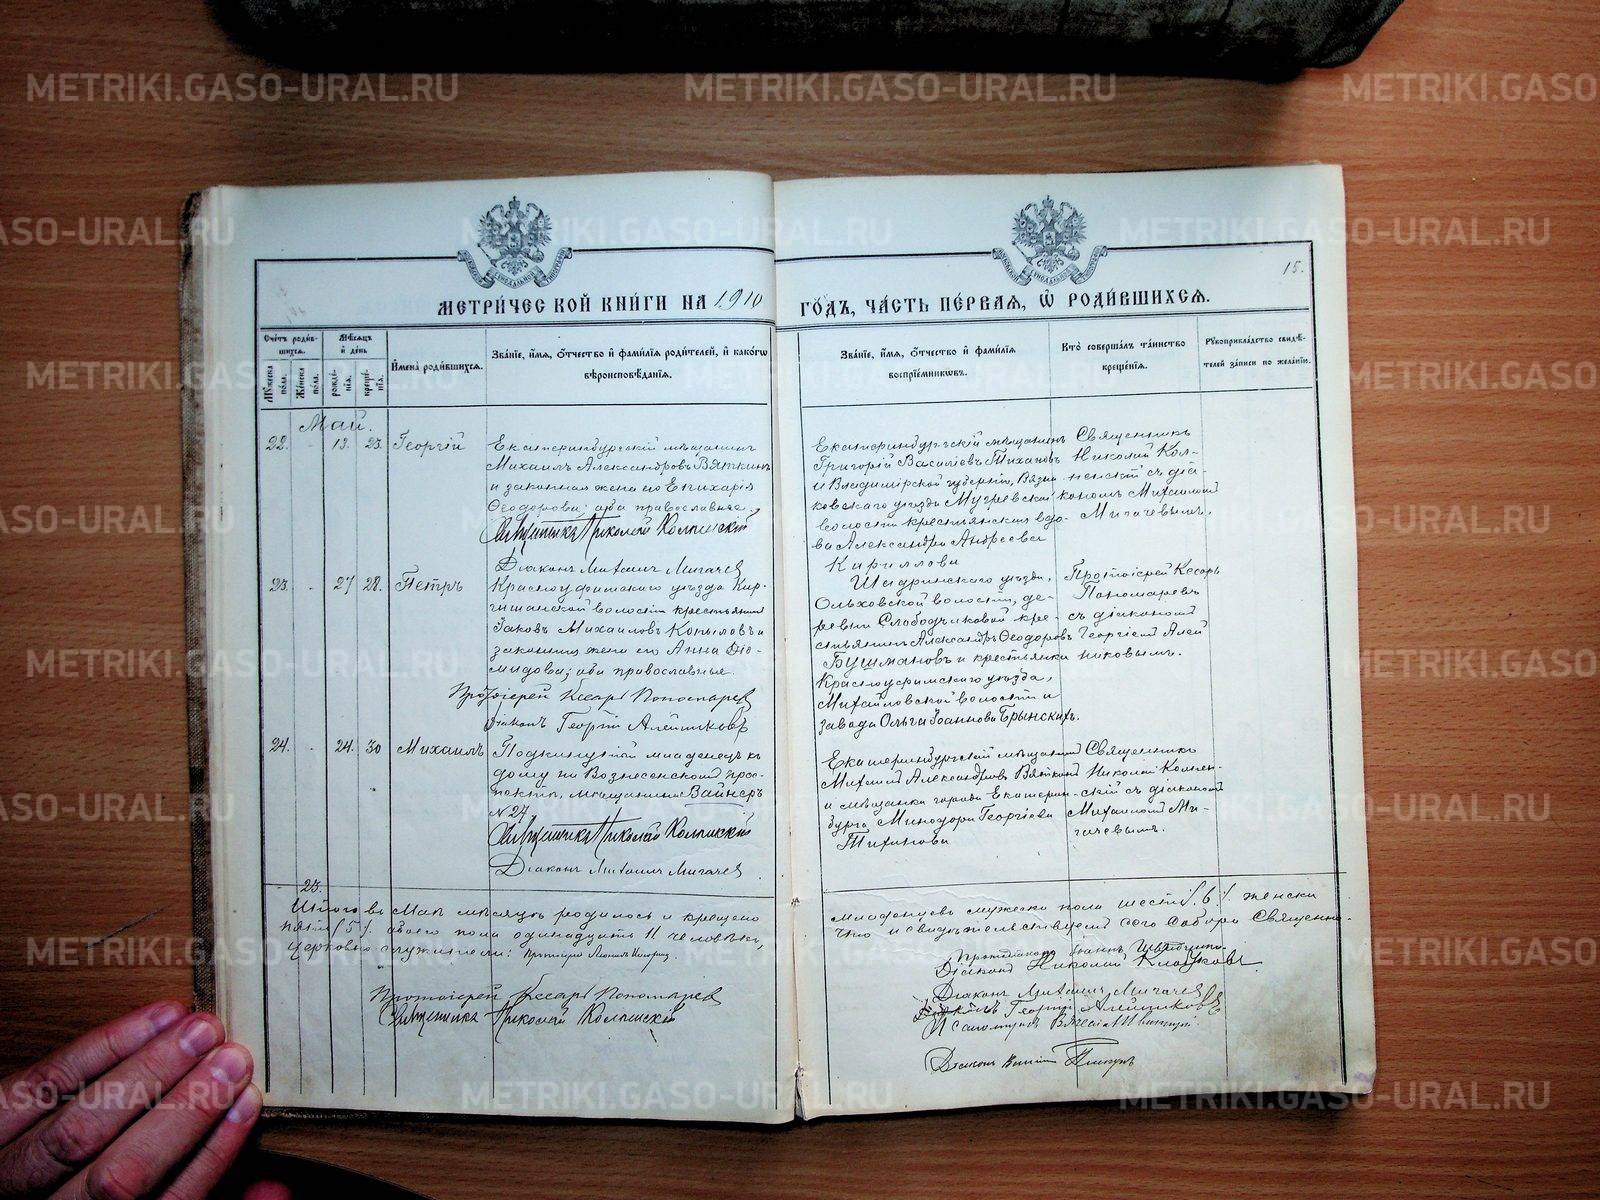 METRIKI.GASO-URAL.RU
15.
МЕТРИЧЕСКОЙ КНИГИ НА 1910
ГОДЪ, ЧАСТЬ ПЕРВАЯ, Ѿ РОДИВШИХСЯ.
Счетъ родившихся.
Мѣсяцъ и день
Имена родившихся.
Званіе, имя, отчество и фамилія родителей, и какого вѣроисповѣданія.
Званіе, имя, отчество и фамилія воспріемниковъ.
Кто совершалъ таинство крещенія.
Рукоприкладство свидѣтелей записи по желанію.
Мужеска пола.
Женска пола.
рожденія.
крещенія.
Май.
22. - 13. 23. Георгій
Екатеринбургскій мѣщанинъ
Михаилъ Александровъ Вяткинъ
и законная жена его Епихарія
Ѳеодорова; оба православные.
Священникъ Николай Колпинскій
Діаконъ Михаилъ Мигачевъ
Екатеринбургскій мѣщанинъ
Григорій Васильевъ Тихановъ
и Владимірской губерніи, Вязни-
ковскаго уѣзда Мугреевской
волости крестьянская вдо-
ва Александра Андреева
Кириллова
Священникъ
Николай Кол-
пинскій съ діа-
кономъ Михаиломъ
Мигачевымъ.
23. - 27 28. Петръ
Красноуфимскаго уѣзда Кир-
гишанской волости крестьянинъ
Іаковъ Михаиловъ Копыловъ и
законная жена его Анна Діо-
мидова; оба православные.
Протоіерей Кесарь Пономаревъ
Діаконъ Георгій Алейниковъ
Шадринскаго уѣзда,
Ольховской волости, де-
ревни Слободчиковой кре-
стьянинъ Александръ Ѳеодоровъ
Бушмановъ и крестьянка
Красноуфимскаго уѣзда,
Михайловской волости и
завода Ольга Іоаннова Брынскихъ.
Протоіерей Кесарь
Пономаревъ
съ діакономъ
Георгіемъ Алей-
никовымъ.
24. - 24. 30 Михаилъ
Подкинутый младенецъ къ
дому по Вознесенскому прос-
пекту, мѣщанина Вайнеръ
№ 27
Священникъ Николай Колпинскій
Діаконъ Михаилъ Мигачевъ
Екатеринбургскій мѣщанинъ
Михаилъ Александровъ Вяткинъ
и мѣщанка города Екатерин-
бурга Минодора Георгіева
Тиханова
Священникъ
Николай Колпин-
скій съ діакономъ
Михаиломъ Ми-
гачевымъ.
23.
Итого въ Маѣ мѣсяцѣ родилось и крещено
младенцевъ мужеска пола шесть (6), женска
пять (5), обоего пола одинадцать 11 человѣкъ,
что и свидѣтельствуемъ сего Собора Священно-
церковно служители:
Протоіерей Кесарь Пономаревъ
Священникъ Николай Колпинскій
Діаконъ Николай
Діаконъ Михаилъ Мигачевъ
Діаконъ Георгій Алейниковъ
Діаконъ